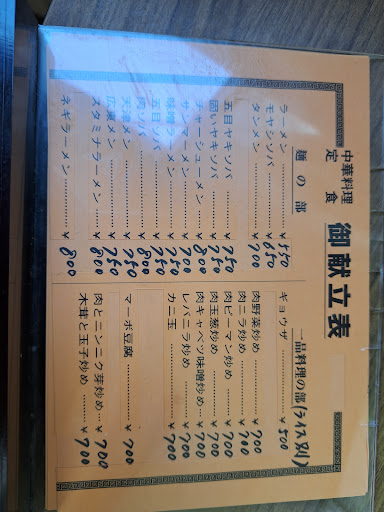 中華料理
定食
御献立表
麺の部
ラーメン………¥550
モヤシソバ………¥650
タンメン………¥700
五目ヤキソバ………¥750
固いヤキソバ………¥750
チャーシューメン………¥800
サンマーメン………¥750
味噌ラーメン………¥750
五目ソバ………¥750
ソバ………¥800
天津メン………¥750
広東メン………¥750
スタミナラーメン………¥800
ネギラーメン………¥800
一品料理の部(ライス別)
ギョウザ………¥500
肉野菜炒め………¥700
肉ニラ炒め………¥700
肉ピーマン炒め………¥700
肉玉葱炒め………¥700
肉キャベツ味噌炒め…¥700
レバニラ炒め………¥700
カニ玉………¥700
マーボ豆腐………¥700
肉とニンニク芽炒め…¥700
木茸と玉子炒め………¥700